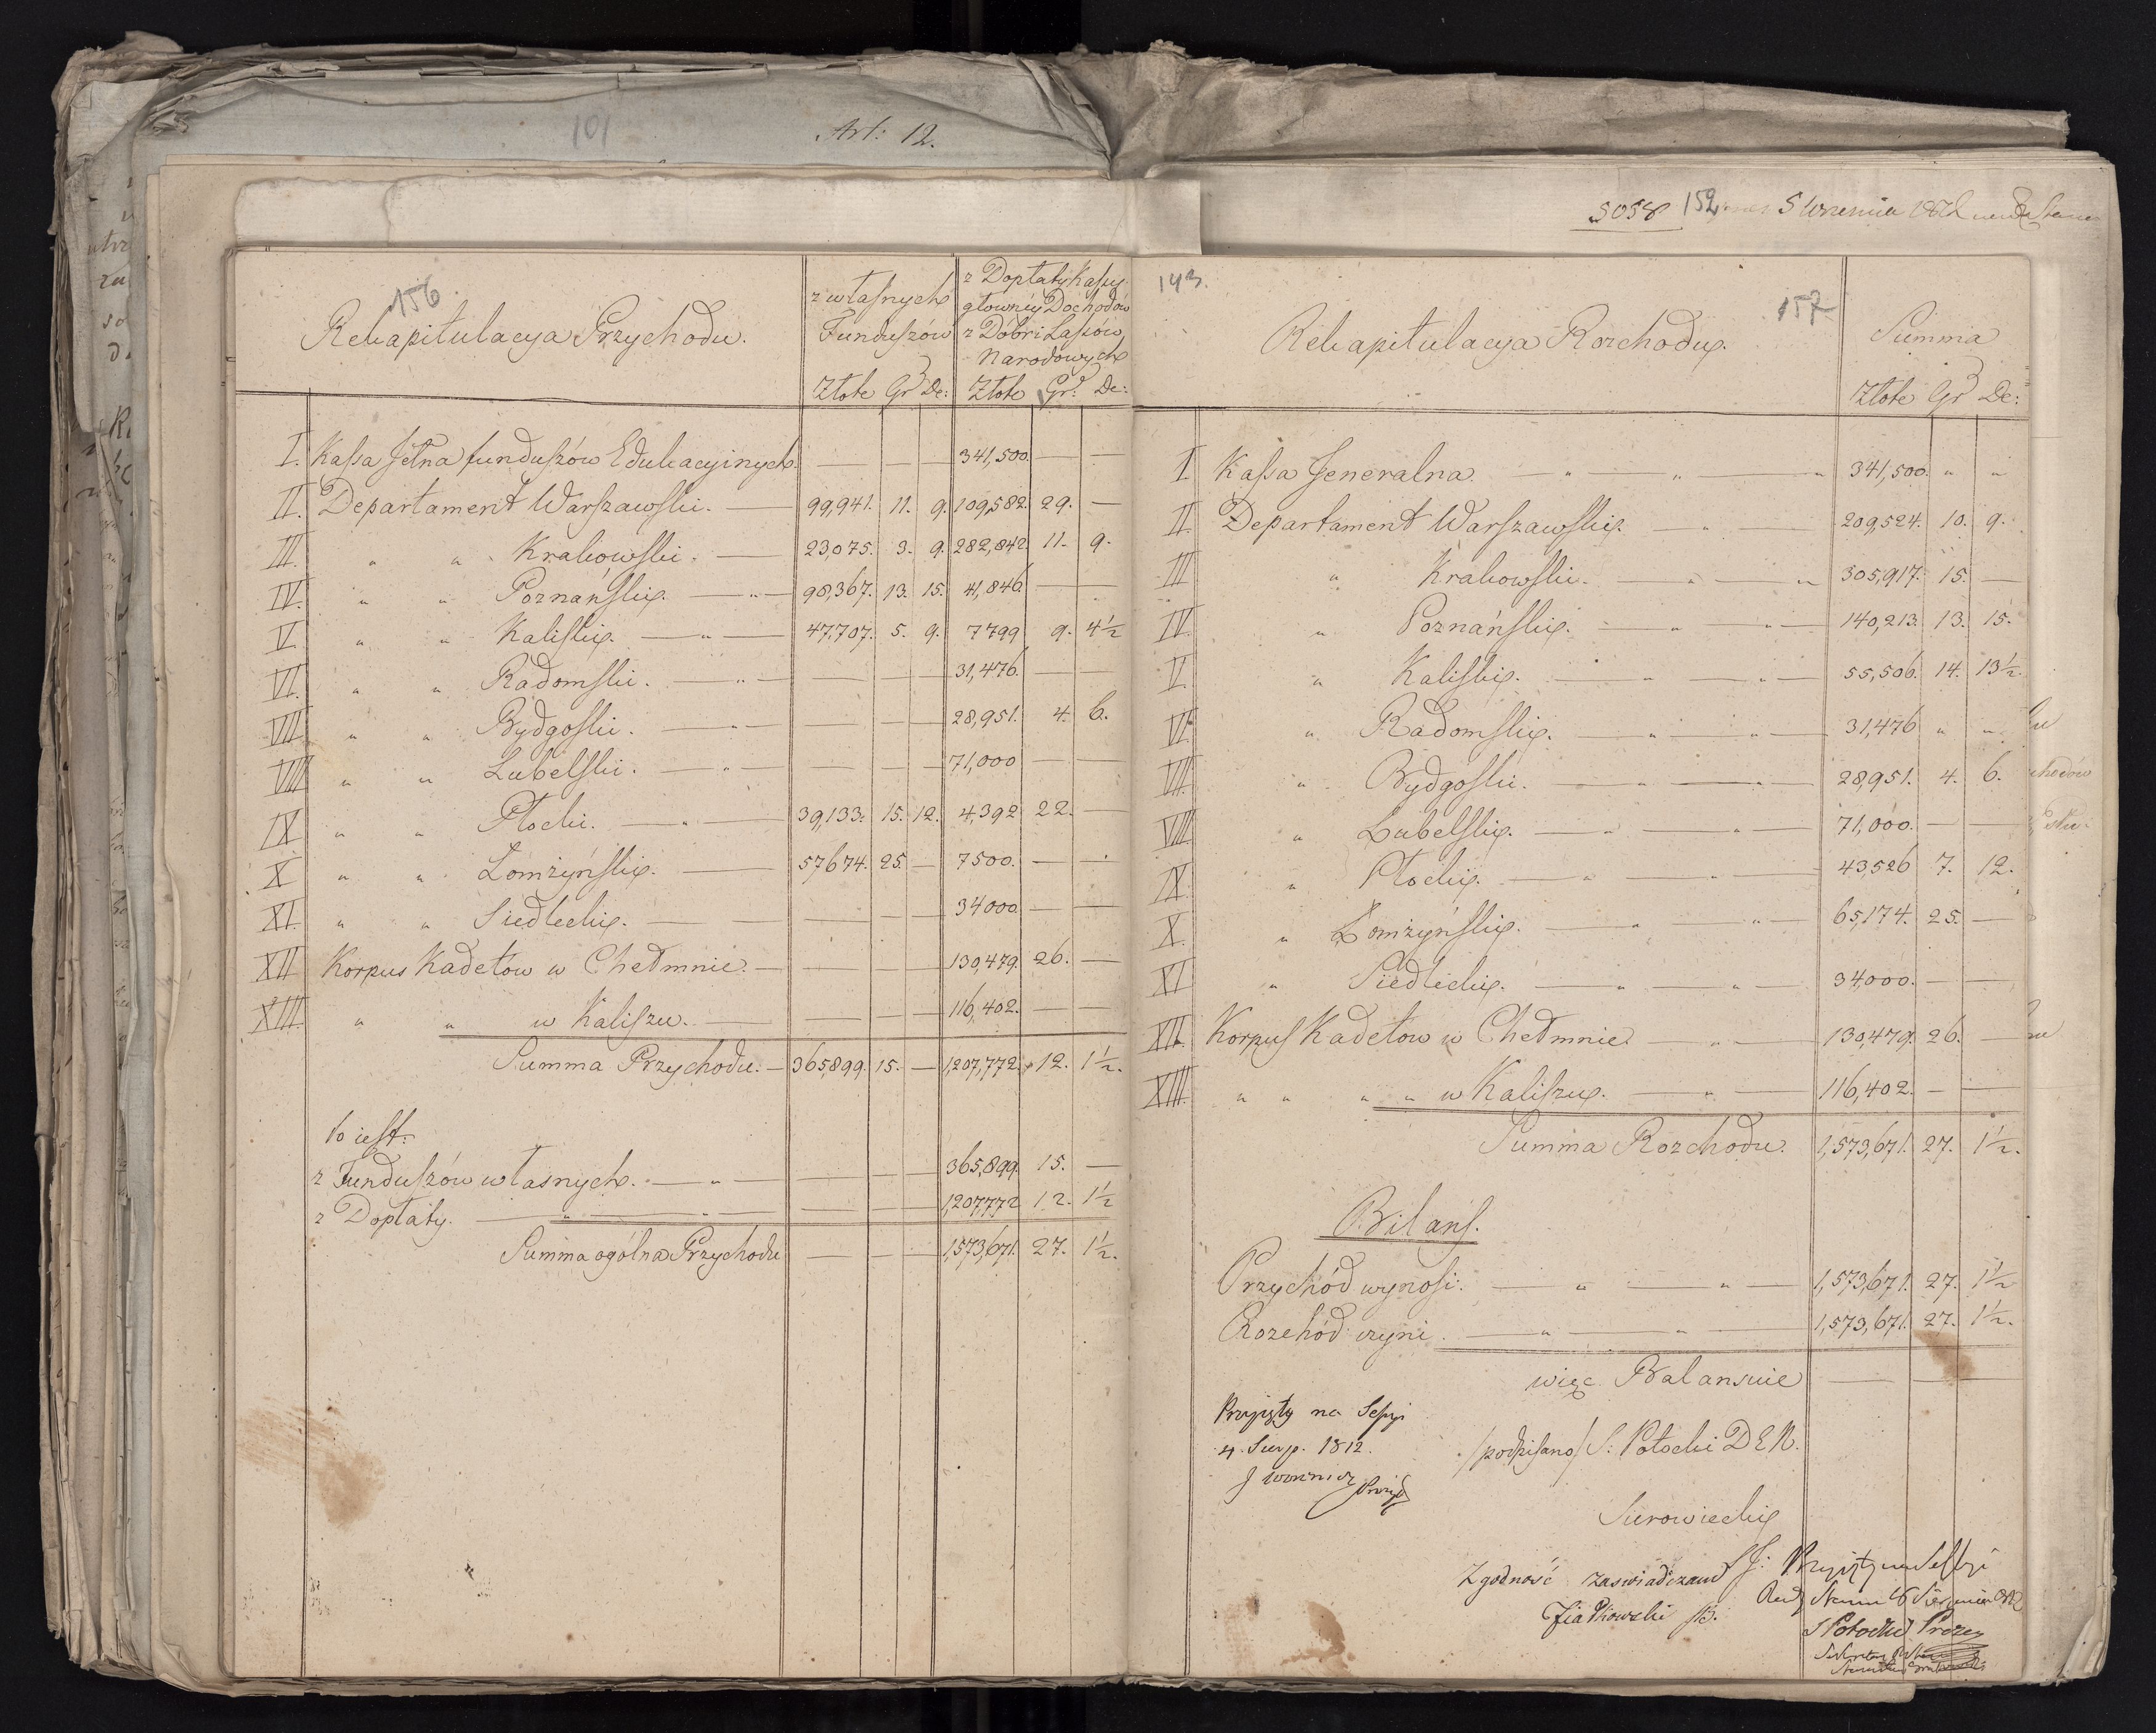 101
Art: 12.
5058
152
5 Września
156
Rekapitulacya Przychodu.
z własnych
Funduszów
Złote Gr De:
z Dopłaty Kassy
główney Dochodów
z Dóbr i Lasów
Narodowych
Złote Gr: De:
I. Kassa Jelna funduszów Edukacyinych. — — — 341,500. — —
II. Departament Warszawski. — 99,941. 11. 9. 109,582. 29. —
III. " " Krakowski. — 23075. 3. 9. 282,842. 11. 9.
IV. " " Poznański. — " — 98,367. 13. 15. 41,846. — —
V. " " Kaliski. — " — 47,707. 5. 9. 7799 9. 4½
VI. " " Radomski. — " — — — — 31,476. — —
VII. " " Bydgoski. — " — — — — 28,951. 4. 6.
VIII. " " Lubelski. — " — — — — 71,000 — —
IX " " Płocki. — " — 39,133. 15. 12. 4,392 22. —
X " " Łomżyński. — 57674. 25. — 7500. — —
XI. " " Siedlecki. — — — — 34000. — —
XII Korpus Kadetow w Chełmnie. — — — — 130,479. 26. —
XIII. " " w Kaliszu. — — — — 116,402. — —
Summa Przychodu. — 365,899. 15. — 1,207,772. 12. 1½.
to iest:
z Funduszów własnych. — " — — — — 365,899. 15. —
z Dopłaty. — " — " — — — — 1,207,772 12. 1½
Summa ogólna Przychodu — — — 1,573,671. 27. 1½.
143.
157
Rekapitulacya Rozchodu.
Summa
Złote Gr De:
I. Kassa Jeneralna. — " — " — " 341,500. " "
II. Departament Warszawski. — " — 209,524. 10. 9.
III " Krakowski. — " — " 305,917. 15. —
IV. " Poznański. — " — " — 140,213. 13. 15.
V. " Kaliski. — " — " — 55,506. 14. 13½.
VI. " Radomski. — " — " — 31,476 " "
VII. " Bydgoski. — " — " — 28,951. 4. 6.
VIII. " Lubelski. — " — " — 71,000. — —
IX. " Płocki. — " — " — 43,526 7. 12.
X. " Łomżyński. — " — " — 65,174. 25. —
XI " Siedlecki. — " — " — 34,000. — —
XII. Korpus Kadetow w Chełmnie — " — 130,479. 26. —
XIII. " " " " w Kaliszu. — " — 116,402. — —
Summa Rozchodu. 1,573,671. 27. 1½.
Bilans.
Przychód wynosi: — " — " — 1,573,671. 27. 1½
Rozchód czyni. — " — " — 1,573,671. 27. 1½.
więc Balansuie — — —
Przyięty na Sessyi
4. Sierp. 1812.
/podpisano/ S: Potocki D E N.
Surowiecki
Zgodność zaswiadczam
Przyięty na Sessyi